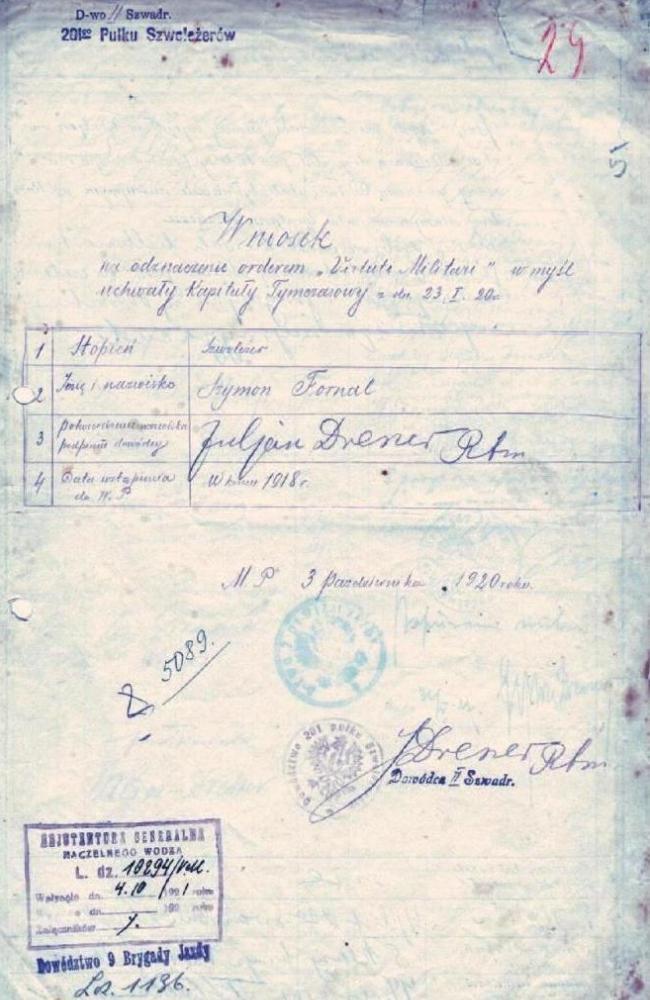 D-wo II Szwadr.
201go Pułku Szwoleżerów
29
5
Wniosek
na odznaczenie orderem „Virtuti Militari" w myśl
uchwały Kapituły Tymczasowej z dn. 23.I.20r.
1 Stopień szwoleżer
2 Imię i nazwisko Szymon Fornal
3 nazwiska
podpisem dowódcy Juljan Drener Rtm
4 Data wstąpienia
do W.P. 1918 r.
M.P. 3 Października 1920 roku.
5089.
Dowództwo 201 pułku
J Drener Rtm
Dowódca II Szwadr.
ADJUTANTURA GENERALNA
NACZELNEGO WODZA
L. dz. 10294/V.M.
Wpłynęło dn. 4.10 1921 roku
dn. 192 roku
Załączników 1.
Dowództwo 9 Brygady Jazdy
L.z. 1136.